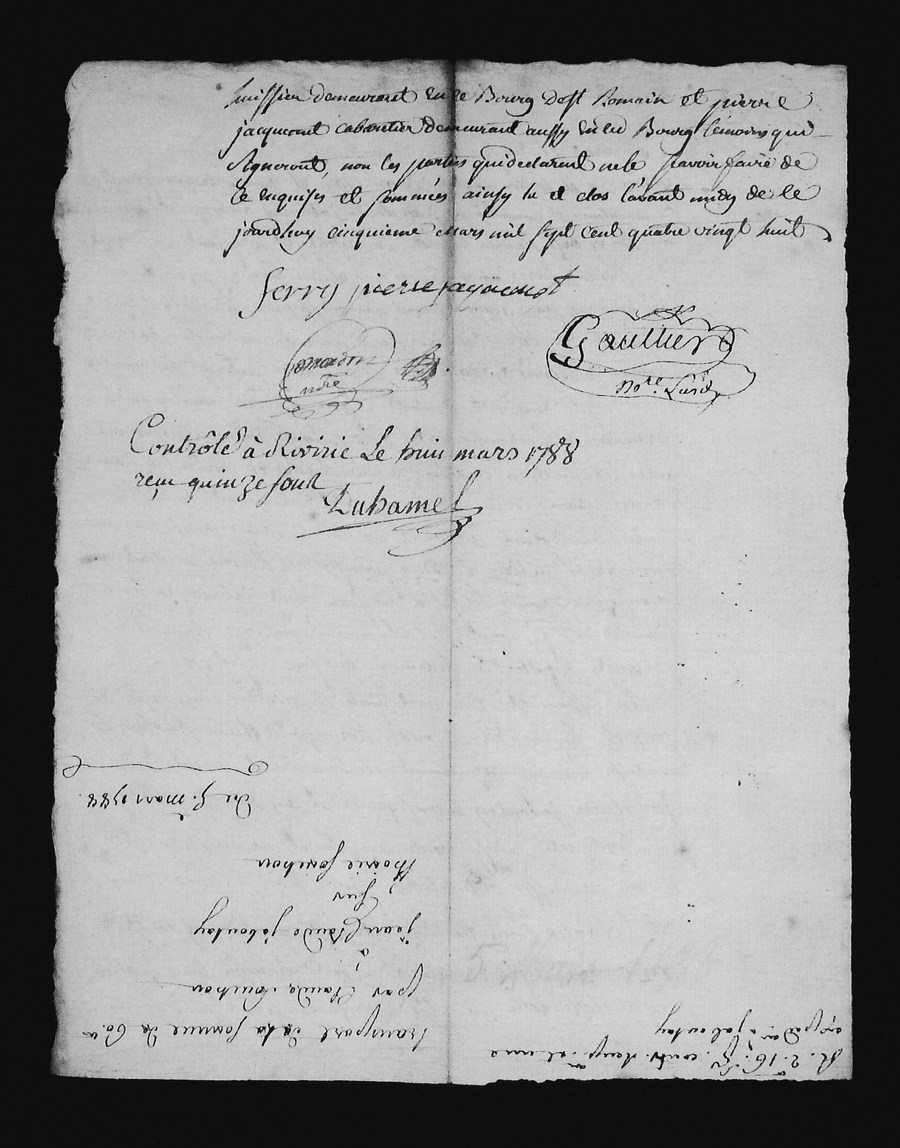 huissier demeurant en ce Bourg de st Romain et pierre
jacquemot cabaretier demeurant aussy en ce Bourg temoins qui
signeront, non les parties qui declarent ne le sçavoir faire de
ce enquises et sommées ainsy lu et clos l'avant midy de ce
jourdhuy cinquieme mars mil sept cent quatre vingt huit
ferry pierre jaquemot
Gaultier
nore
no.re
Contrôlé à Rivirie Le huit mars 1788
reçu quinze sout
Duhamel
transport de la somme de 60.#
par Claude Souchon
a
jean Claude jaboulay
sur
Marie souchon
du 5.e mars 1788